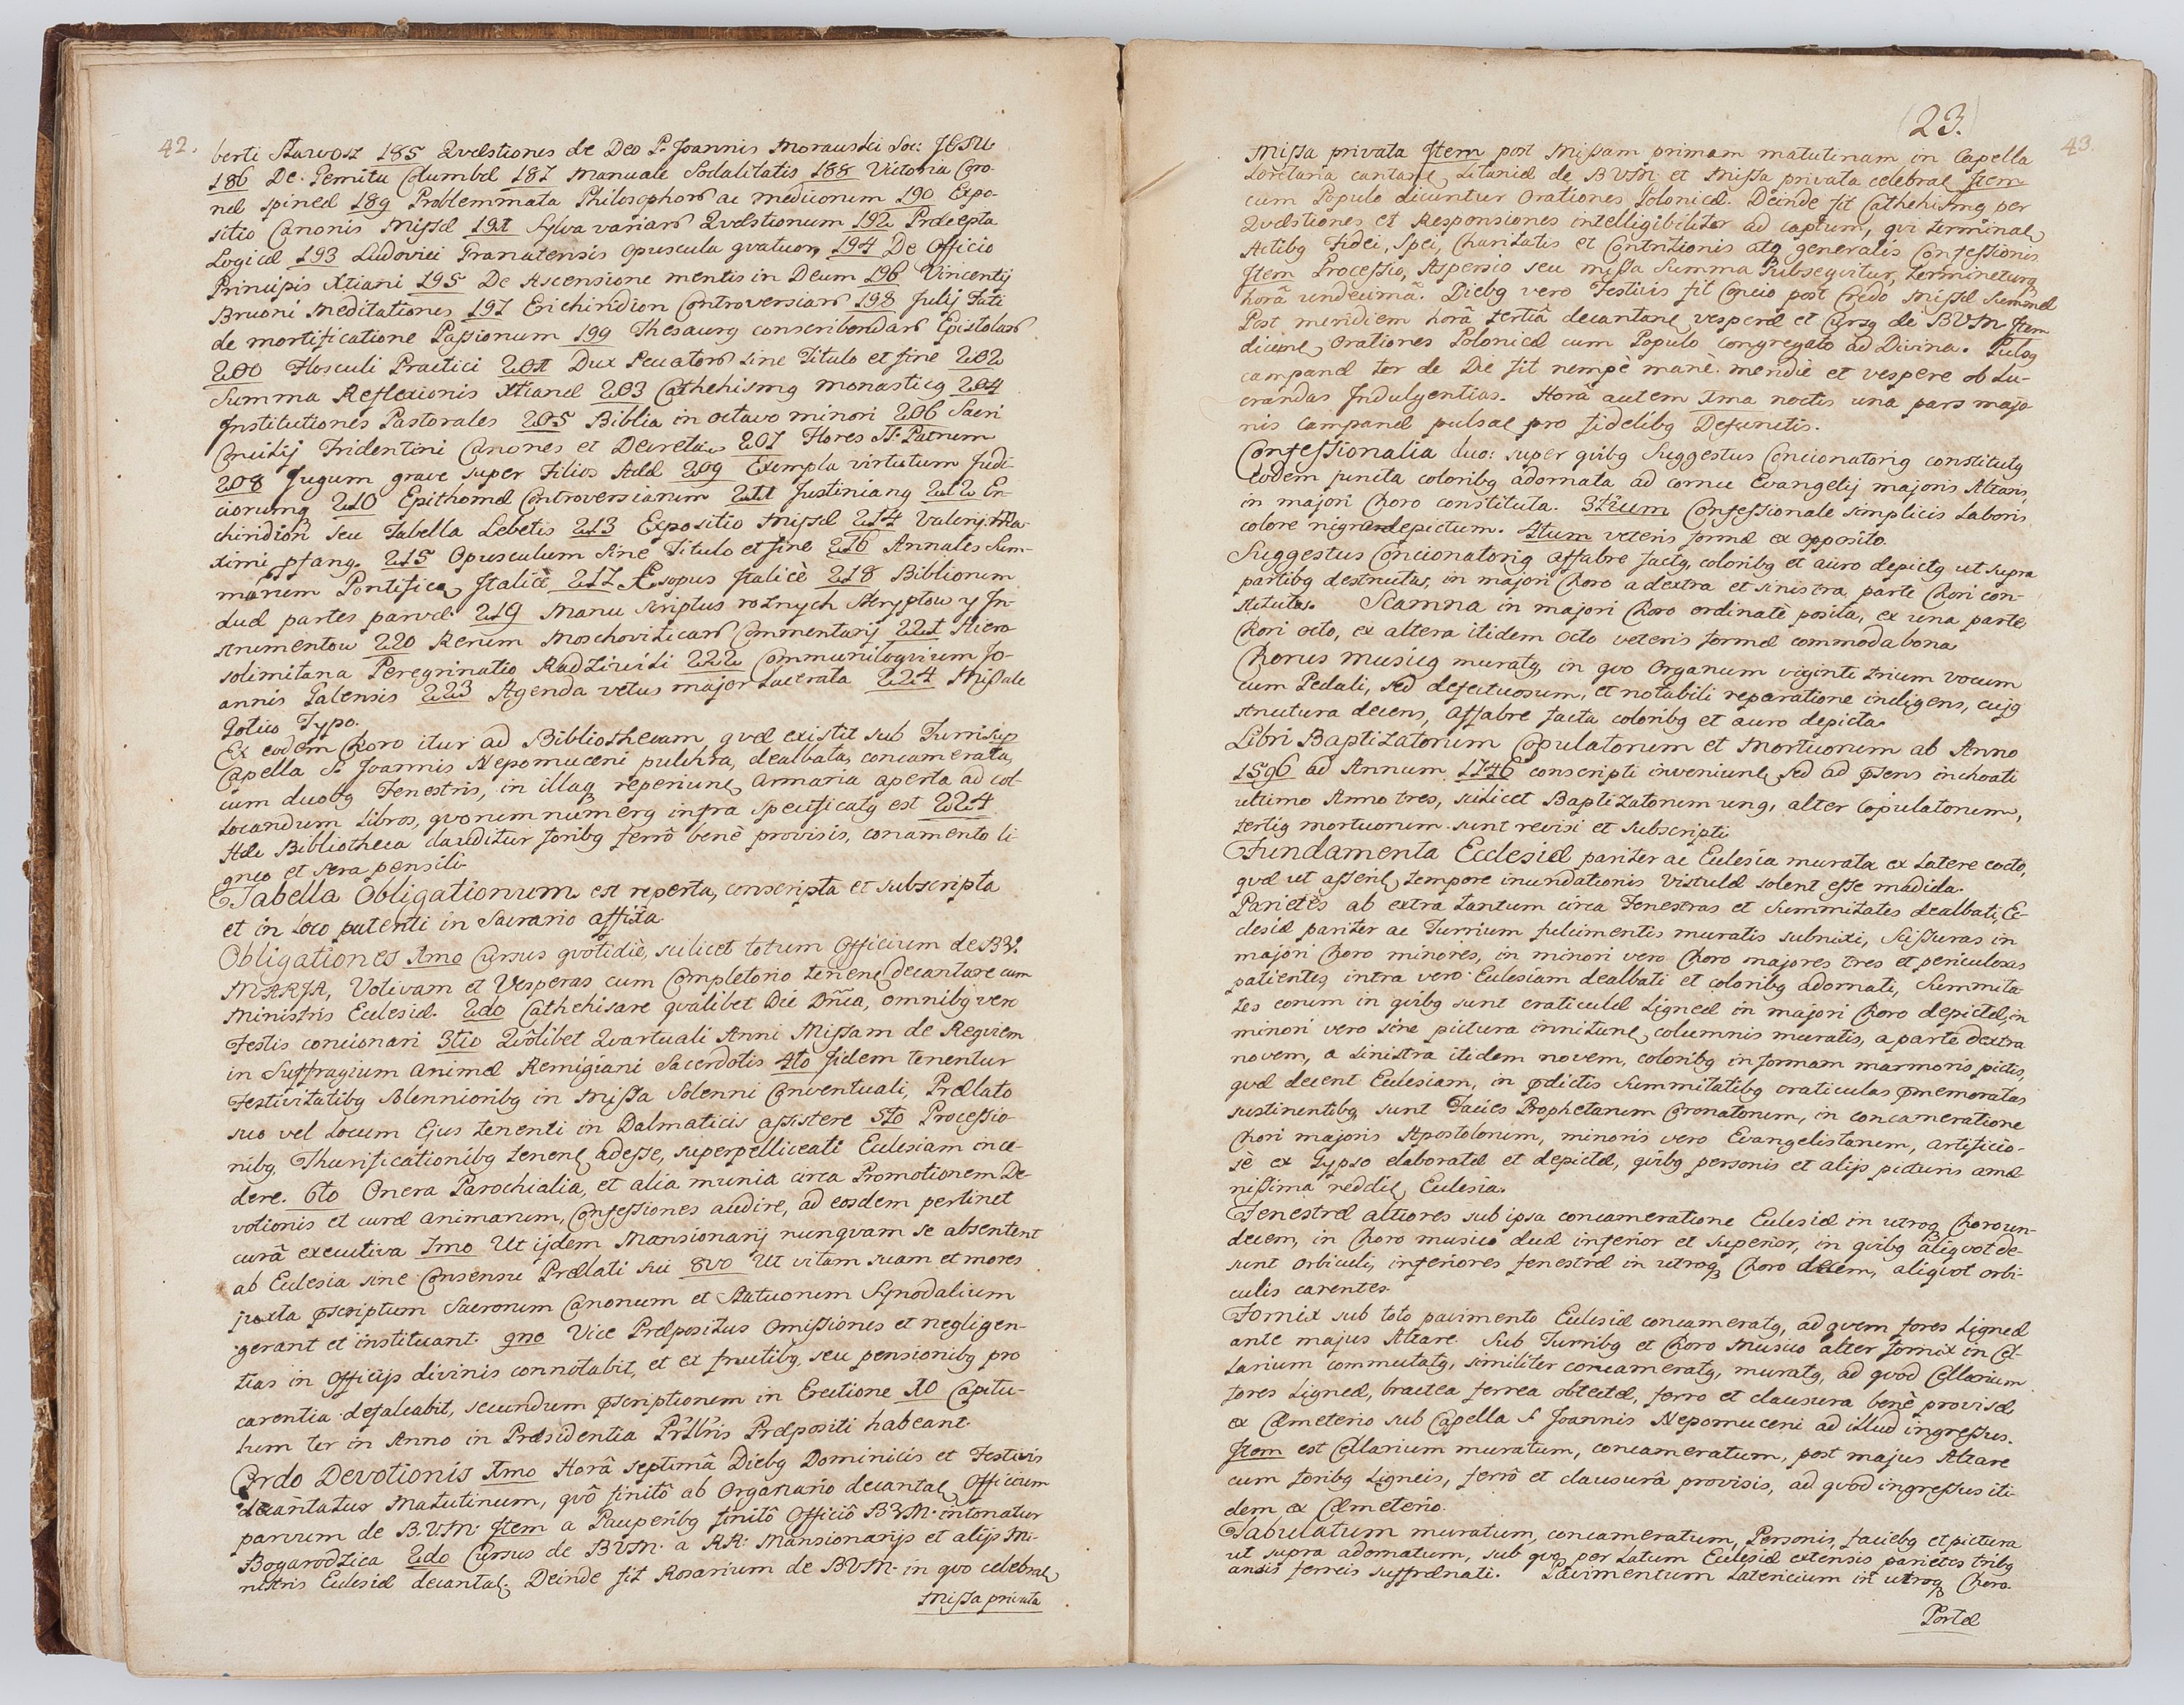 42.
berti Starvosz 185 Quæstiones de Deo P. Joannis Morauski Soc: JESU
186 De Gemitu Columbæ 187 Manuale Sodalitatis 188 Victoria Coro-
næ spineæ 189 Problemmata Philosophorũ ac medicorum 190 Expo-
sitio Canonis Missæ 191 Sylva variarũ Quæstionum 192 Præcepta
Logicæ 193 Ludovici Granatensis opuscula quatuor, 194 De Officio
Principis Xtiani 195 De Ascensione mentis in Deum 196 Vincentij
Bruoni Meditationes 197 Enchiridion Controversiarũ 198 Julij Fati
de mortificatione Passionum 199 Thesaurꝯ conscribendarũ Epistolarũ
200 Flosculi Practici 201 Dux Peccatorũ sine Titulo et fine 202
Summa Reflexionis Xtianæ 203 Cathehismꝯ Monasticꝯ 204
Institutiones Pastorales 205 Biblia in octavo minori 206 Sacri
Concilij Tridentini Canones et Decreta 207 Flores SS. Patrum
208 Jugum grave super Filios Adæ 209 Exempla virtutum Judi-
ciorumq 210 Epithomæ Controversiarum 211 Justinianꝯ 212 En-
chiridion seu Tabella Lebetis 213 Expositio Missæ 214 Valerij Ma-
ximi pfang. 215 Opusculum sine Titulo et fine 216 Annales Sum-
morum Pontificũ Italicè 217 Æsopus Italicè 218 Bibliorum
duæ partes parvæ 219 Manu scriptus roznych Skryptow y In-
strumentow 220 Rerum Moschoviticarũ Commentarij 221 Hiero-
solimitana Peregrinatio Radziwili 222 Communiloqvium Jo-
annis Galensis 223 Agenda vetus major lacerata 224 Missale
Gotico Typo.
Ex eodem Choro itur ad Bibliothecam, quæ existit sub Turri sup
Capella S. Joannis Nepomuceni pulchra, dealbata, concamerata,
cum duobꝯ Fenestris, in illaq reperiunt̃ armaria aperta ad col-
locandum Libros, quorum numerꝯ infra specificatꝯ est 224
Hæc Bibliotheca clauditur foribꝯ ferrô benè provisis, conamento li-
gneo et sera pensili.
Tabella Obligationum est reperta, conscripta et subscripta
et in loco patenti in Sacrario affixa.
Obligationes 1mo Cursus quotidiè, scilicet totum Officium de B.V.
MARIA, Votivam et Vesperas cum Completorio tenent̃ decantare cum
Ministris Ecclesiæ. 2do Cathehisare quâlibet Die Dñica, omnibꝯ vero
Festis concionari 3tio Quôlibet Quartuali Anni Missam de Requiem
in Suffragium animæ Remigiani Sacerdotis 4to Iidem tenentur
Festivitatibꝯ Solennioribꝯ in Missa Solenni Conventuali, Prælato
suo vel Locum Ejus tenenti in Dalmaticis assistere 5to Processio-
nibꝯ, Thurificationibꝯ tenent̃ adesse, superpelliceati Ecclesiam ince-
dere. 6to Onera Parochialia, et alia munia circa Promotionem De-
votionis et curæ animarum, Confessiones audire, ad eosdem pertinet
curâ executiva 7mo Ut ijdem Mansionarij nunquam se absentent
ab Ecclesia sine Consensu Prælati sui 8vo Ut vitam suam et mores
juxta p̃scriptum Sacrorum Canonum et Statuorum Synodalium
gerant et instituant. 9no Vice Præpositus Omissiones et negligen-
tias in Officijs divinis connotabit, et ex fructibꝯ, seu pensionibꝯ pro
carentia defalcabit, secundum p̃scriptionem in Erectione 10 Capitu-
lum ter in Anno in Præsidentia Præpositi habeant.
Ordo Devotionis 1mo Horâ septimâ Diebꝯ Dominicis et Festivis
decantatur Matutinum, quô finitô ab Organario decantat̃ Officium
parvum de B.V.M. Item a Pauperibꝯ finitô Officiô B.V.M. intonatur
Bogarodzica 2do Cursus de BVM. a RR: Mansionarijs et alijs Mi-
nistris Ecclesiæ decantat̃. Deinde fit Rosarium de BVM. in quo celebrat̃
Missa privata
(23.)
43.
Missa privata Item post Missam primam matutinam in Capella
Loretana cantant̃ Litaniæ de BVM. et Missa privata celebrat̃ Item
cum Populo dicuntur Orationes Polonicæ. Deinde fit Cathehismꝯ per
Quæstiones et Responsiones intelligibiliter ad captum, qui terminat̃
Actibꝯ Fidei, Spei, Charitatis et Contritionis atq generalis Confessionis
Item Processio, Aspersio seu missa Summa subsequitur, termineturq
horâ undecimâ. Diebꝯ vero Festivis fit Concio post Credo Missæ Summæ
Post meridiem horâ tertiâ decantant̃ vesperæ et Cursꝯ de BVM Item
dicunt̃ Orationes Polonicæ cum Populo congregato ad Divina. Pulsꝯ
campanæ ter de Die fit nempè manè meridiè et vespere ob Lu-
crandas Indulgentias. Horâ autem 1ma noctis una pars majo-
ris campanæ pulsat̃ pro fidelibꝯ Defunctis.
Confessionalia duo: super quibꝯ Suggestus Concionatoriꝯ constitutꝯ
Eodem juncta coloribꝯ adornata ad cornu Evangelij majoris Altaris,
in majori Choro constituta. 3tium Confessionale simplicis Laboris
colore nigro depictum. 4tum veteris formæ ex opposito.
Suggestus Concionatoriꝯ affabre factꝯ, coloribꝯ et auro depictꝯ ut supra
partibꝯ destructas, in majori Choro a dextra et sinistra parte Chori con-
stitutas. Scamna in majori Choro ordinatè posita, ex una parte
Chori octo, ex altera itidem octo veteris formæ commoda bona
Chorus Musicꝯ muratꝯ, in quo Organum viginti trium vocum
cum Pedali, sed defectuosum, et notabili reparatione indigens, cujꝯ
structura decens, affabre facta coloribꝯ et auro depicta
Libri Baptizatorum Copulatorum et Mortuorum ab Anno
1596 ad Annum 1746 conscripti inveniunt̃, sed ad p̃sens inchoati
ultimo Anno tres, scilicet Baptizatorum unꝯ, alter Copulatorum,
tertiꝯ mortuorum. sunt revisi et subscripti
Fundamenta Ecclesiæ pariter ac Ecclesia murata ex Latere cocto,
quæ ut asserit̃, tempore inundationis Vistulæ solent esse madida.
Parietes ab extra tantum circa Fenestras et Summitates dealbati, Ec-
clesiæ pariter ac Turrium fulcimentis muratis subnixi, Scissuras in
majori Choro minores, in minori vero Choro majores tres et periculosas
patientes, intra vero Ecclesiam dealbati et coloribꝯ adornati, Summita-
tes eorum in quibꝯ sunt craticulæ Ligneæ in majori Choro depictæ, in
minori vero sine pictura innitunt̃, columnis muratis, a parte dextra
novem, a sinistra itidem novem, coloribꝯ in formam marmoris pictis,
quæ decent Ecclesiam, in p̃dictis Summitatibꝯ craticulas p̃memoratas
sustinentibꝯ, sunt Facies Prophetarum Coronatorum, in concameratione
Chori majoris Apostolorum, minoris vero Evangelistarum, artificio-
sè ex Gypso elaboratæ et depictæ, quibꝯ personis et alijs picturis amæ-
nissima reddit̃, Ecclesia.
Fenestræ altiores sub ipsa concameratione Ecclesiæ in utroq Choro un-
decem, in Choro musico duæ inferior et superior, in quibꝯ aliquot de-
sunt orbiculi, inferiores fenestræ in utroq Choro decem, aliquot orbi-
culis carentes.
Fornix sub toto pavimento Ecclesiæ concameratꝯ, ad quem fores Ligneæ
ante majus Altare. Sub Turribꝯ et Choro Musico alter fornix in Cel-
larium commutatꝯ, similiter concameratꝯ, muratꝯ, ad quod Cellarium
fores Ligneæ, bractea ferrea obtectæ, ferro et clausura benè provisæ,
ex Cæmeterio sub Capella S. Joannis Nepomuceni ad illud ingressus.
Item est Cellarium muratum, concameratum, post majus Altare
cum foribꝯ Ligneis, ferrô et clausurâ provisis, ad quod ingressus iti-
dem ex Cæmeterio.
Tabulatum muratum, concameratum, Personis, faciebꝯ et pictura
ut supra adornatum, sub quo per Latum Ecclesiæ extensis parietes tribꝯ
ansis ferreis suffrænati. Pavimentum Latericium in utroq Choro.
Portæ